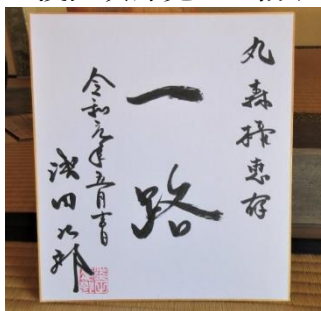 丸森様恵存
一路
令和元年五月吉日
浅田次郎